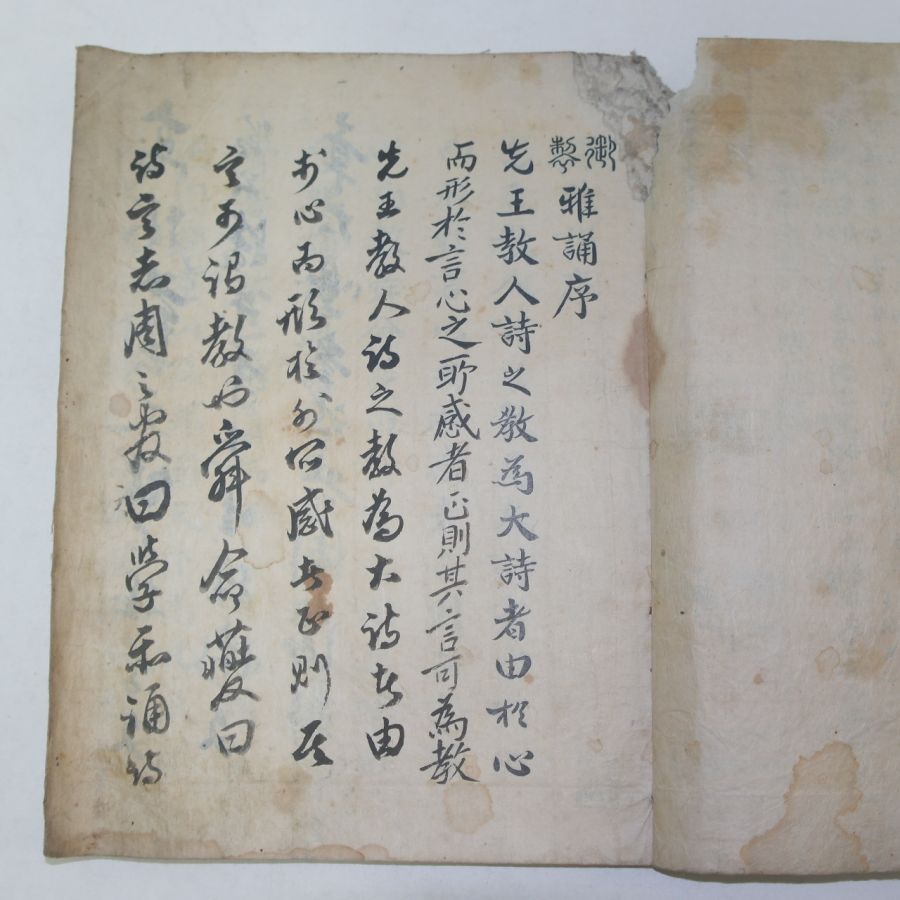 御製雅誦序
先王教人詩之教為大詩者由於心
而形於言心之所感者正則其言可為教
先王教人詩之教為大詩者由
於心而形於外所感者正則其
言可謂教也舜命夔曰
詩言志周之曰學樂誦詩